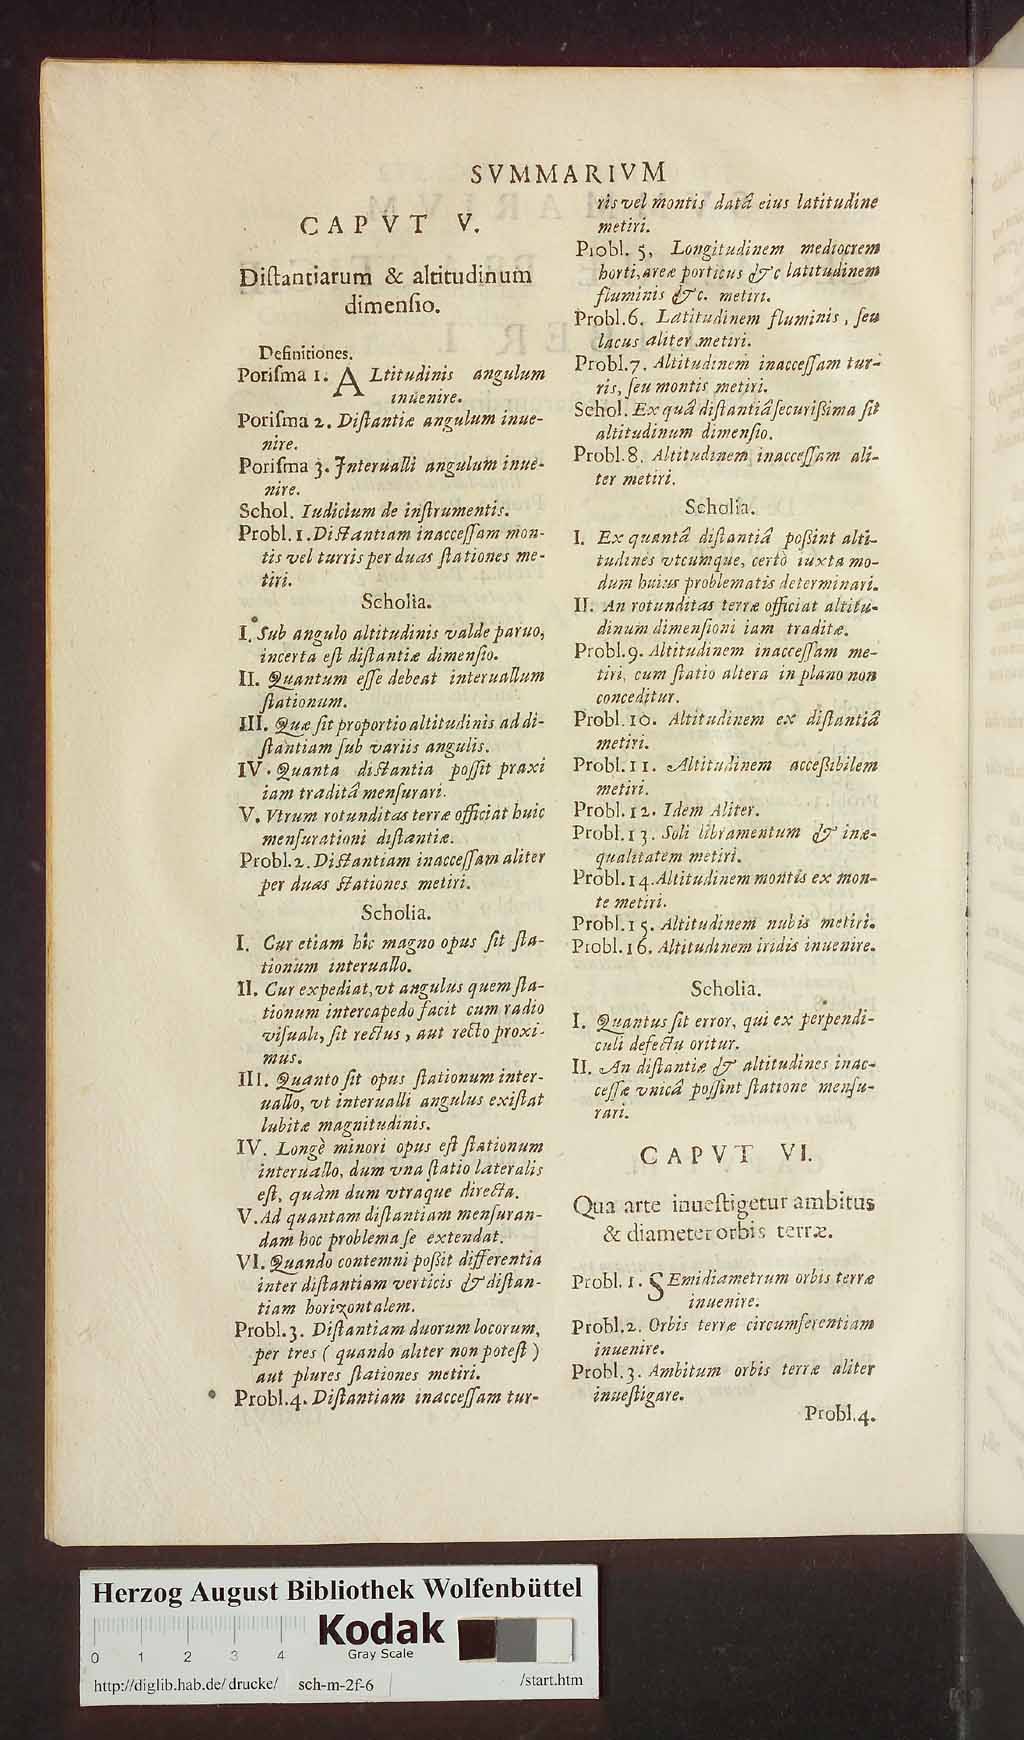 SVMMARIVM
CAPVT V.
Diſtantiarum & altitudinum
dimenſio.
Definitiones.
Poriſma 1. ALtitudinis angulum
inuenire.
Poriſma 2. Diſtantiæ angulum inue-
nire.
Poriſma 3. Interualli angulum inue-
nire.
Schol. Iudicium de inſtrumentis.
Probl. 1. Diſtantiam inacceſſam mon-
tis vel turris per duas ſtationes me-
tiri.
Scholia.
I. Sub angulo altitudinis valde paruo,
incerta eſt diſtantiæ dimenſio.
II. Quantum eſſe debeat interuallum
ſtationum.
III. Quæ ſit proportio altitudinis ad di-
ſtantiam ſub variis angulis.
IV. Quanta diſtantia poſſit praxi
iam traditâ menſurari.
V. Vtrum rotunditas terræ officiat huic
menſurationi diſtantiæ.
Probl. 2. Diſtantiam inacceſſam aliter
per duas ſtationes metiri.
Scholia.
I. Cur etiam hîc magno opus ſit ſta-
tionum interuallo.
II. Cur expediat, vt angulus quem ſta-
tionum intercapedo facit cum radio
viſuali, ſit rectus, aut recto proxi-
mus.
III. Quanto ſit opus ſtationum inter-
uallo, vt interualli angulus exiſtat
lubitæ magnitudinis.
IV. Longè minori opus eſt ſtationum
interuallo, dum vna ſtatio lateralis
eſt, quàm dum vtraque directa.
V. Ad quantam diſtantiam menſuran-
dam hoc problema ſe extendat.
VI. Quando contemni poßit differentia
inter diſtantiam verticis & diſtan-
tiam horizontalem.
Probl. 3. Diſtantiam duorum locorum,
per tres ( quando aliter non poteſt )
aut plures ſtationes metiri.
Probl. 4. Diſtantiam inacceſſam tur-
ris vel montis datâ eius latitudine
metiri.
Probl. 5, Longitudinem mediocrem
horti, areæ porticus &c latitudinem
fluminis &c. metiri.
Probl. 6. Latitudinem fluminis, ſeu
lacus aliter metiri.
Probl. 7. Altitudinem inacceſſam tur-
ris, ſeu montis metiri.
Schol. Ex quâ diſtantiâ ſecurißima ſit
altitudinum dimenſio.
Probl. 8. Altitudinem inacceſſam ali-
ter metiri.
Scholia.
I. Ex quantâ diſtantiâ poßint alti-
tudines vtcumque, certò iuxta mo-
dum huius problematis determinari.
II. An rotunditas terræ officiat altitu-
dinum dimenſioni iam traditæ.
Probl. 9. Altitudinem inacceſſam me-
tiri, cum ſtatio altera in plano non
conceditur.
Probl. 10. Altitudinem ex diſtantiâ
metiri.
Probl. 11. Altitudinem acceßibilem
metiri.
Probl. 12. Idem Aliter.
Probl. 13. Soli libramentum & inæ-
qualitatem metiri.
Probl. 14. Altitudinem montis ex mon-
te metiri.
Probl. 15. Altitudinem nubis metiri.
Probl. 16. Altitudinem iridis inuenire.
Scholia.
I. Quantus ſit error, qui ex perpendi-
culi defectu oritur.
II. An diſtantiæ & altitudines inac-
ceſſæ vnicâ poſſint ſtatione menſu-
rari.
CAPVT VI.
Qua arte inueſtigetur ambitus
& diameter orbis terræ.
Probl. 1. SEmidiametrum orbis terræ
inuenire.
Probl. 2. Orbis terræ circumferentiam
inuenire.
Probl. 3. Ambitum orbis terræ aliter
inueſtigare.
Probl. 4.
Herzog August Bibliothek Wolfenbüttel
Kodak
Gray Scale
0 1 2 3 4
http://diglib.hab.de/drucke/ sch-m-2f-6 /start.htm